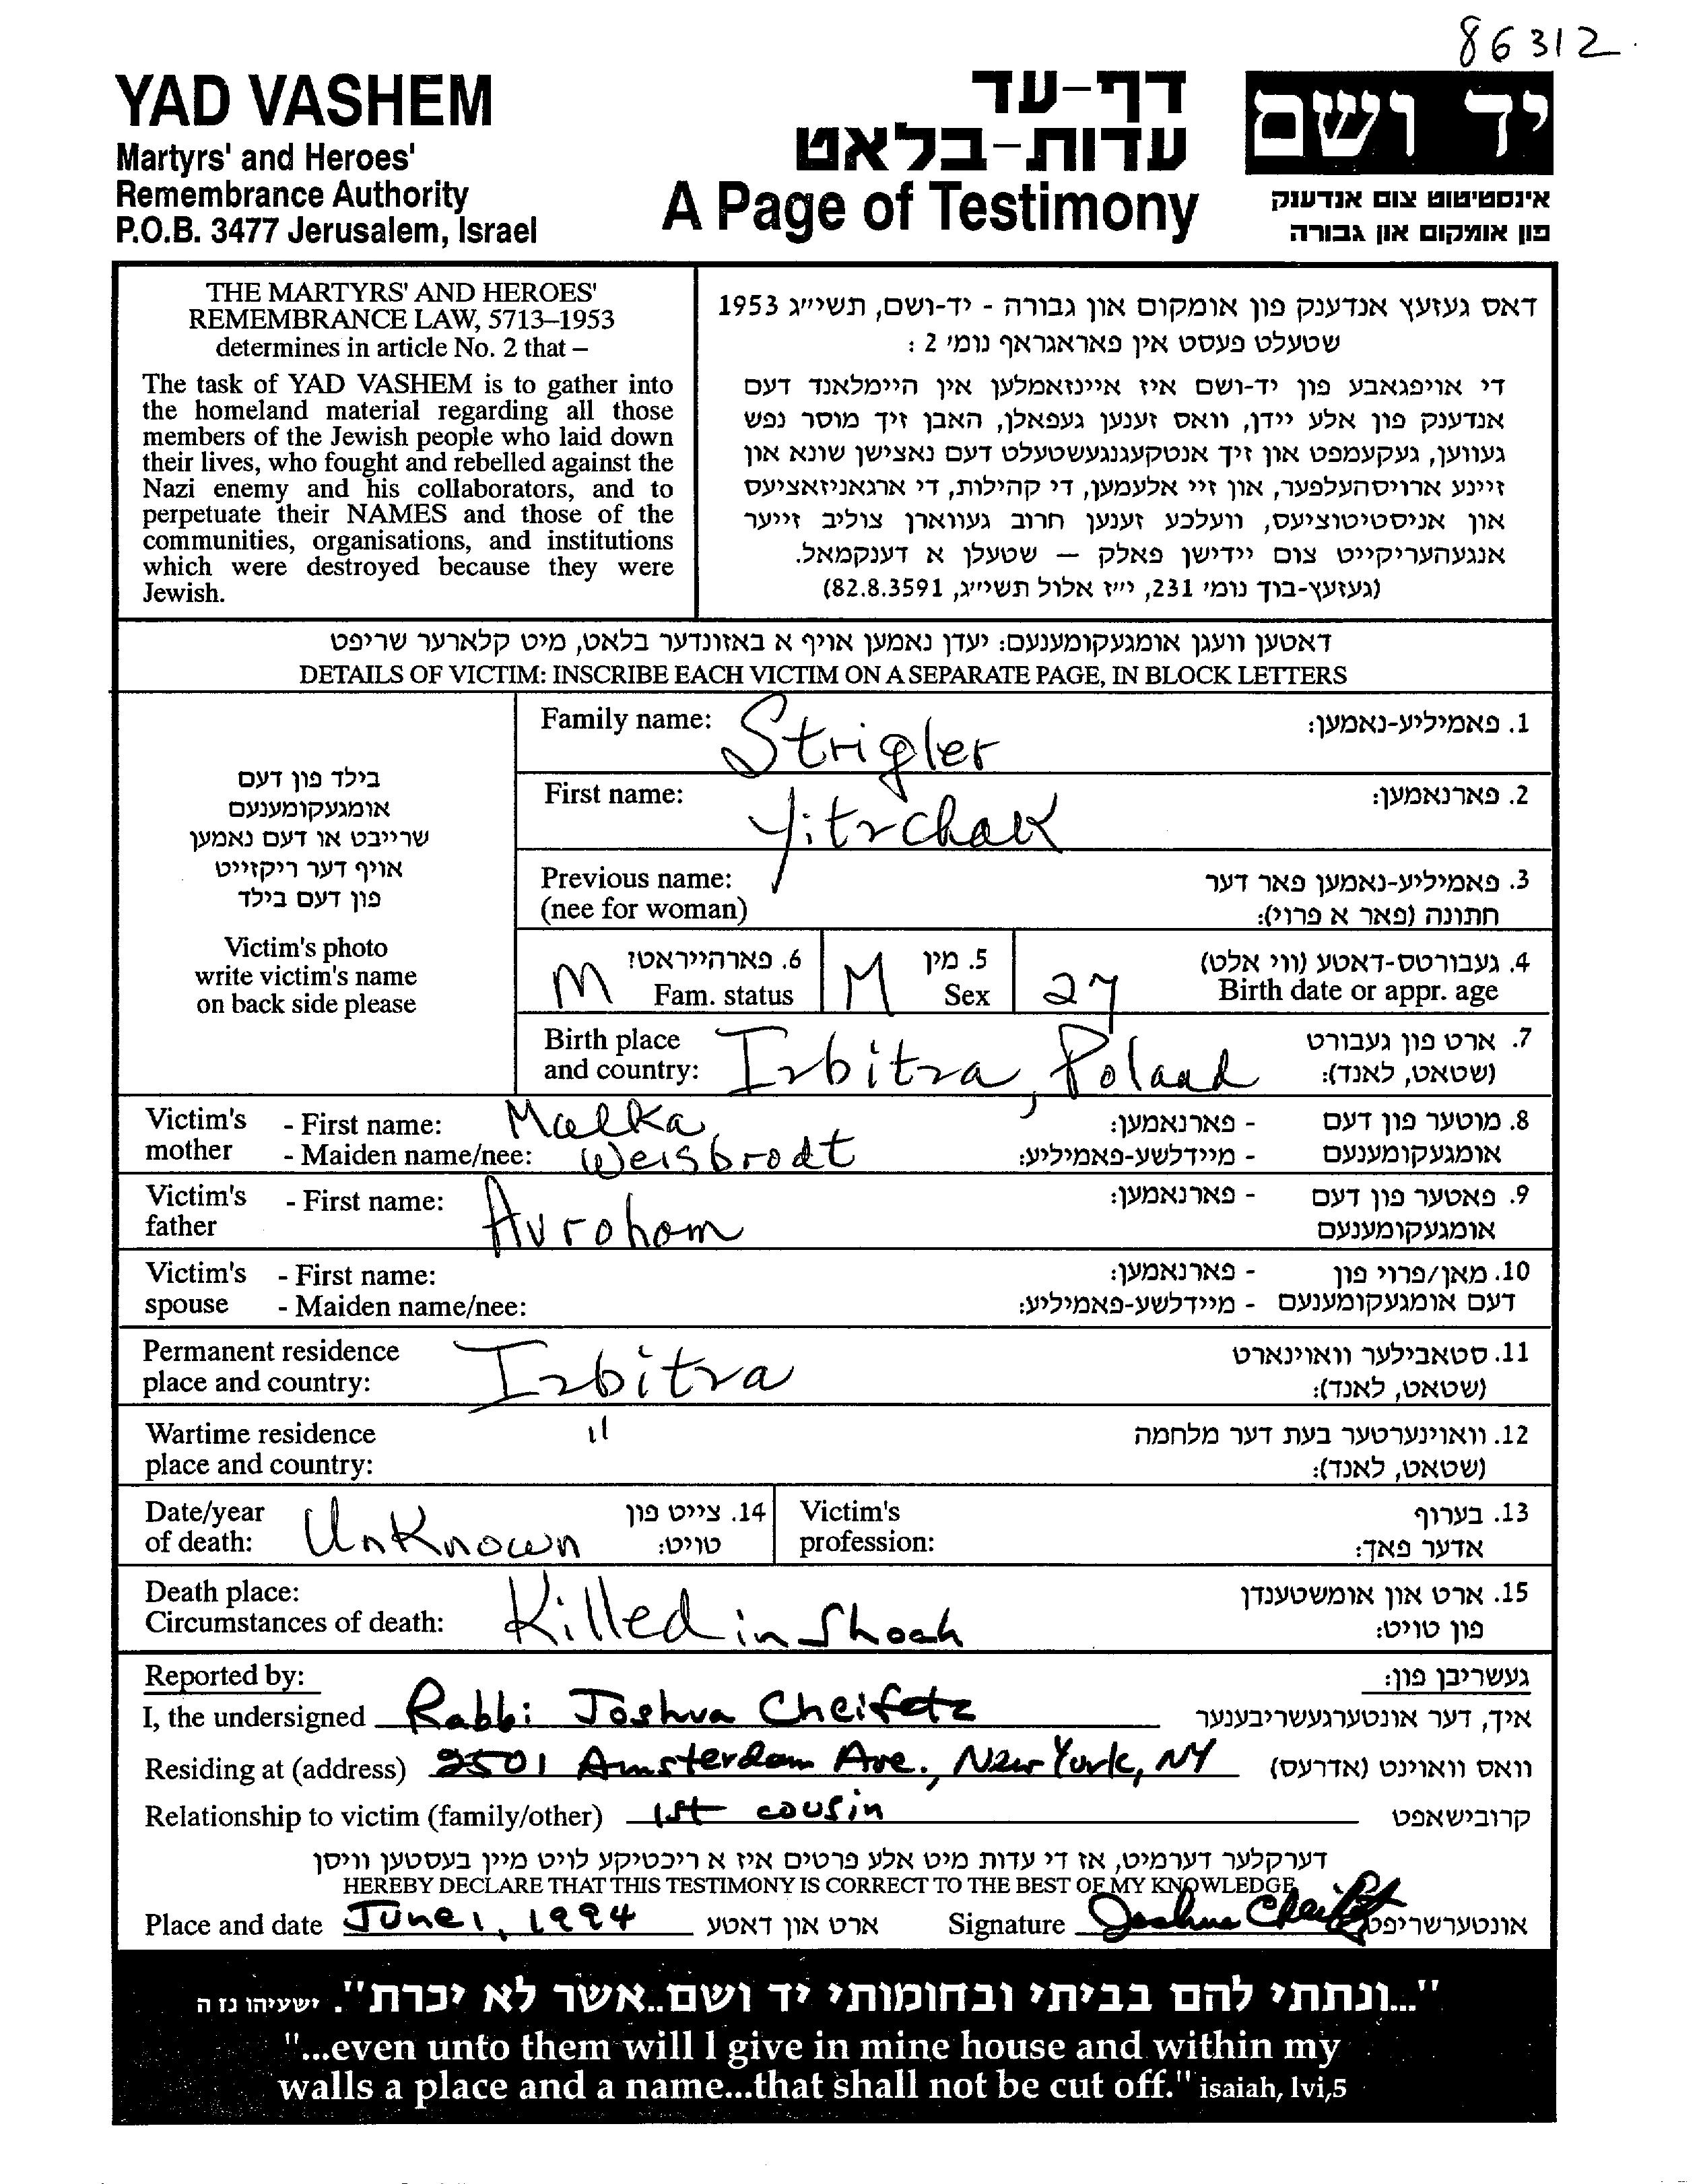 86312
YAD VASHEM
Martyrs' and Heroes'
Remembrance Authority
P.O.B. 3477 Jerusalem, Israel
דף-עד
עדות-בלאט
A Page of Testimony
יד ושם
אינסטיטוט צום אנדענק
פון אומקום און גבורה
THE MARTYRS' AND HEROES'
REMEMBRANCE LAW, 5713–1953
determines in article No. 2 that –
The task of YAD VASHEM is to gather into
the homeland material regarding all those
members of the Jewish people who laid down
their lives, who fought and rebelled against the
Nazi enemy and his collaborators, and to
perpetuate their NAMES and those of the
communities, organisations, and institutions
which were destroyed because they were
Jewish.
דאס געזעץ אנדענק פון אומקום און גבורה - יד-ושם, תשי״ג 1953
שטעלט פעסט אין פאראגראף נומ׳ 2 :
די אויפגאבע פון יד-ושם איז איינזאמלען אין היימלאנד דעם
אנדענק פון אלע יידן, וואס זענען געפאלן, האבן זיך מוסר נפש
געווען, געקעמפט און זיך אנטקעגנגעשטעלט דעם נאצישן שונא און
זיינע ארויסהעלפער, און זיי אלעמען, די קהילות, די ארגאניזאציעס
און אניסטיטוציעס, וועלכע זענען חרוב געווארן צוליב זייער
אנגעהעריקייט צום יידישן פאלק – שטעלן א דענקמאל.
(געזעץ-בוך נומ׳ 231, י״ז אלול תשי״ג, 82.8.3591)
דאטען וועגן אומגעקומענעם: יעדן נאמען אויף א באזונדער בלאט, מיט קלארער שריפט
DETAILS OF VICTIM: INSCRIBE EACH VICTIM ON A SEPARATE PAGE, IN BLOCK LETTERS
בילד פון דעם
אומגעקומענעם
שרייבט או דעם נאמען
אויף דער ריקזייט
פון דעם בילד
Victim's photo
write victim's name
on back side please
Family name: Strigler 1. פאמיליע-נאמען:
First name: Yitzchak 2. פארנאמען:
Previous name: 3. פאמיליע-נאמען פאר דער
(nee for woman) חתונה (פאר א פרוי):
M 6. פארהייראט? M 5. מין 27 4. געבורטס-דאטע (ווי אלט)
Fam. status Sex Birth date or appr. age
Birth place Izbitza, Poland 7. ארט פון געבורט
and country: (שטאט, לאנד):
Victim's - First name: Malka - פארנאמען: 8. מוטער פון דעם
mother - Maiden name/nee: Weisbrodt - מיידלשע-פאמיליע: אומגעקומענעם
Victim's - First name: Avrohom - פארנאמען: 9. פאטער פון דעם
father אומגעקומענעם
Victim's - First name: - פארנאמען: 10. מאן/פרוי פון
spouse - Maiden name/nee: - מיידלשע-פאמיליע: דעם אומגעקומענעם
Permanent residence Izbitza 11. סטאבילער וואוינארט
place and country: (שטאט, לאנד):
Wartime residence " 12. וואוינערטער בעת דער מלחמה
place and country: (שטאט, לאנד):
Date/year Unknown 14. צייט פון Victim's 13. בערוף
of death: טויט: profession: אדער פאך:
Death place: 15. ארט און אומשטענדן
Circumstances of death: Killed in Shoah פון טויט:
Reported by: געשריבן פון:
I, the undersigned Rabbi Joshua Cheifetz איך, דער אונטערגעשריבענער
Residing at (address) 2501 Amsterdam Ave., New York, NY וואס וואוינט (אדרעס)
Relationship to victim (family/other) 1st cousin קרובישאפט
דערקלער דערמיט, אז די עדות מיט אלע פרטים איז א ריכטיקע לויט מיין בעסטען וויסן
HEREBY DECLARE THAT THIS TESTIMONY IS CORRECT TO THE BEST OF MY KNOWLEDGE
Place and date June 1, 1994 ארט און דאטע Signature Joshua Cheifetz אונטערשריפט
"...ונתתי להם בביתי ובחומותי יד ושם..אשר לא יכרת". ישעיהו נז ה
"...even unto them will I give in mine house and within my
walls a place and a name...that shall not be cut off." isaiah, lvi,5